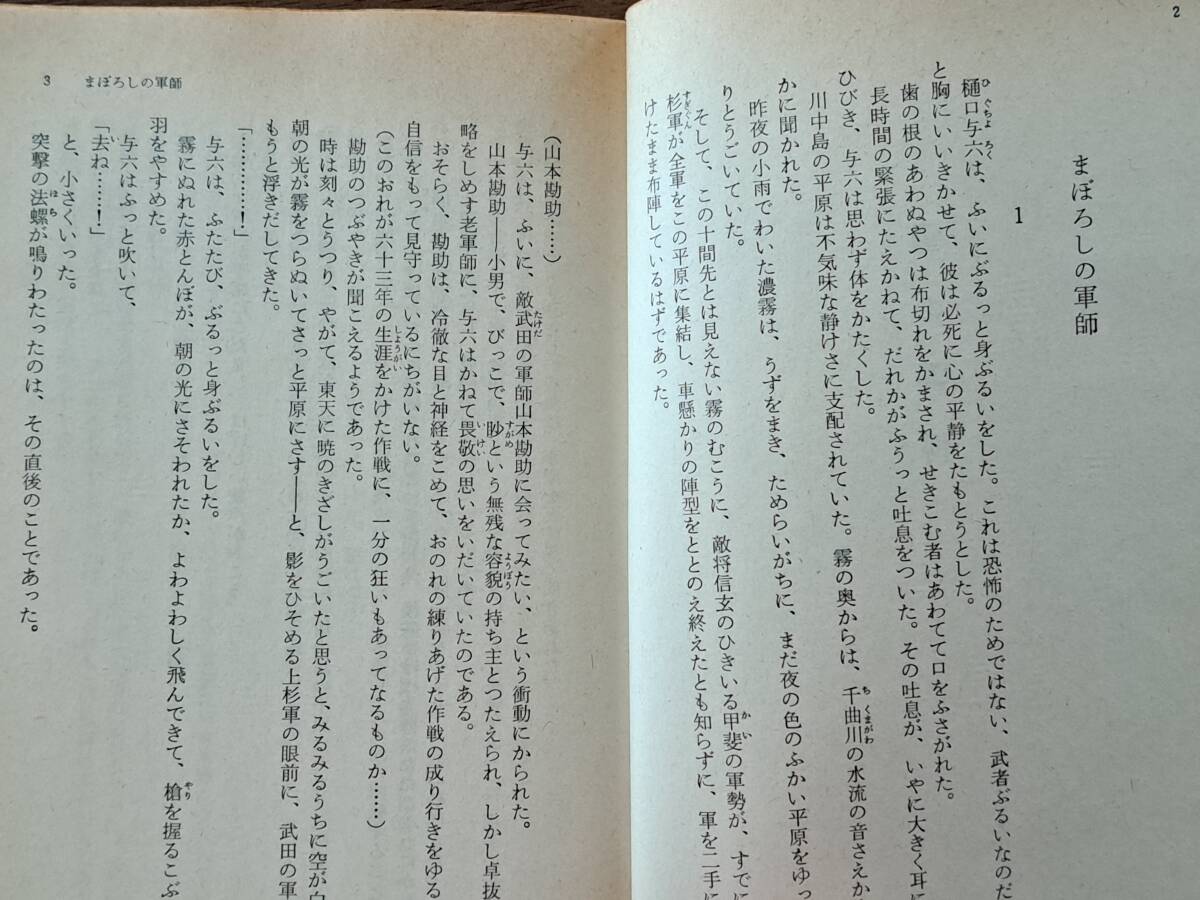 2
まぼろしの軍師
1
樋口与六は、ふいにぶるっと身ぶるいをした。これは恐怖のためではない、武者ぶるいなのだ
と胸にいいきかせて、彼は必死に心の平静をたもとうとした。
歯の根のあわぬやつは布切れをかまされ、せきこむ者はあわてて口をふさがれた。
長時間の緊張にたえかねて、だれかがふうっと吐息をついた。その吐息が、いやに大きく耳に
ひびき、与六は思わず体をかたくした。
川中島の平原は不気味な静けさに支配されていた。霧の奥からは、千曲川の水流の音さえか
かに聞かれた。
昨夜の小雨でわいた濃霧は、うずをまき、ためらいがちに、まだ夜の色のふかい平原をゆっ
りとうごいていた。
そして、この十間先とは見えない霧のむこうに、敵将信玄のひきいる甲斐の軍勢が、すでに
杉軍が全軍をこの平原に集結し、車懸かりの陣型をととのえ終えたとも知らずに、軍を二手に
けたまま布陣しているはずであった。
3 まぼろしの軍師
（山本勘助……）
与六は、ふいに、敵武田の軍師山本勘助に会ってみたい、という衝動にかられた。
山本勘助――小男で、びっこで、眇という無残な容貌の持ち主とつたえられ、しかし卓抜
略をしめす老軍師に、与六はかねて畏敬の思いをいだいていたのである。
おそらく、勘助は、冷徹な目と神経をこめて、おのれの練りあげた作戦の成り行きをゆる
自信をもって見守っているにちがいない。
（このおれが六十三年の生涯をかけた作戦に、一分の狂いもあってなるものか……）
勘助のつぶやきが聞こえるようであった。
時は刻々とうつり、やがて、東天に暁のきざしがうごいたと思うと、みるみるうちに空が白
朝の光が霧をつらぬいてさっと平原にさす――と、影をひそめる上杉軍の眼前に、武田の軍
もうと浮きだしてきた。
「…………！」
与六は、ふたたび、ぶるっと身ぶるいをした。
霧にぬれた赤とんぼが、朝の光にさそわれたか、よわよわしく飛んできて、槍を握るこぶ
羽をやすめた。
与六はふっと吹いて、
「去ね……！」
と、小さくいった。
突撃の法螺が鳴りわたったのは、その直後のことであった。